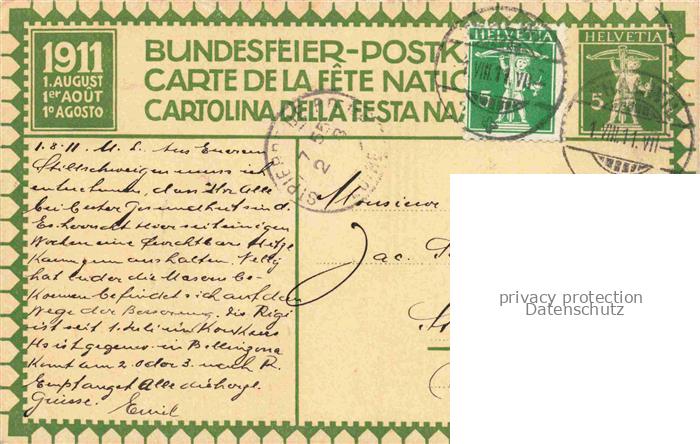 1911
1. AUGUST
1er AOÛT
1º AGOSTO
BUNDESFEIER-POST
CARTE DE LA FÊTE NATIO
CARTOLINA DELLA FESTA NA
HELVETIA
5
HELVETIA
5
1. VIII. 11. VII
1.8.11. M. L. Aus Euerem
Stillschweigen muss ich
entnehmen, dass Ihr Alle
bei bester Gesundheit sind.
Es herrscht hier seit einigen
Wochen eine furchtbare Hitze
Kaum zum aushalten. Nelly
hat leider die Masern be-
kommen befindet sich auf dem
Wege der Besserung. Die Rigi
ist seit 1. Juli im
ist gegenw. in Bellinzona
kommt am 2. oder 3. nach
Empfanget Alle die herzl.
Grüsse. Emil
Monsieur
Jac.
privacy protection
Datenschutz